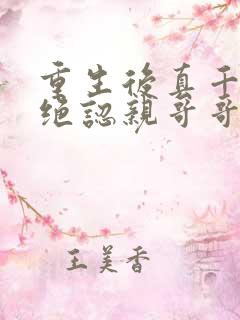 重生後真千
絕認親哥哥
王美香